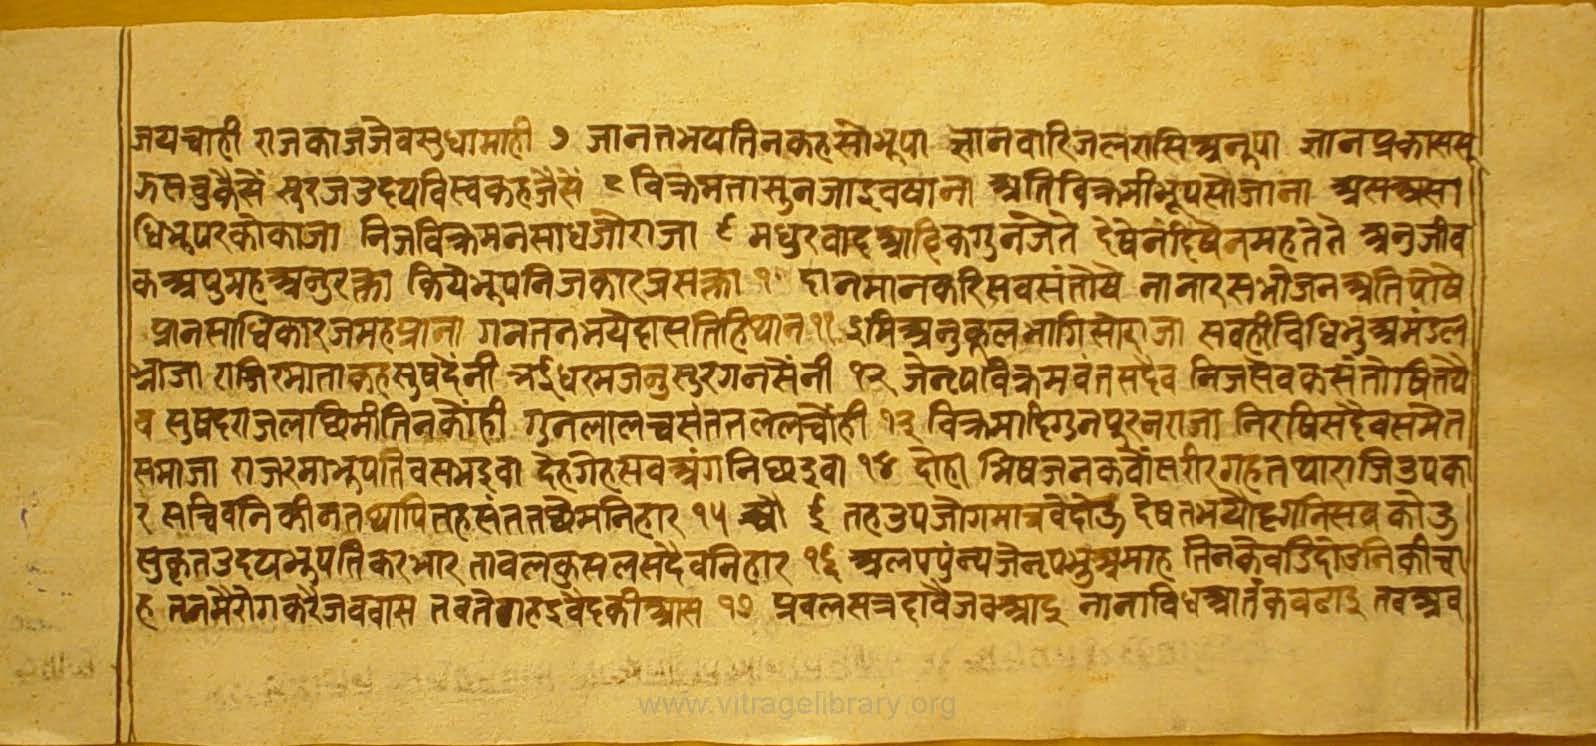 जयचाही राजकाजजैवसुधामाही ७ जानतभयतिनकहसोभुपा ज्ञानवारिजलरासिअनुपा ज्ञानप्रकाससू
कैसैं सुरजउदयविस्वकहजैसैं ८ विक्रमतासुनजाइवषाना अतिविक्रमीभूपसौजाना असअसा
धिभुपरकोकाजा निजविक्रमनसाधजौराजा ९ मधुरवादआदिकगुनजेते देषेनंदिषैनमहतेते अनुजीव
कअपुमहअनुरक्ता कियैभुपनिजकारजसक्ता १० दानमानकरिसवसंतोषे नानारसभोजनअतिपोषे
प्रानसाधिकारजमहप्राना गनततनभयैदासतिहिथान ११ इमिअनुकूलभागिसोराजा सवहीविधिभुअमंडल
भ्राजा राजिरमाताकहसुषदैंनी भईधरमजनुसुरगनसैंनी १२ जेनृपविक्रमवंतसदैव निजसेवकसंतोषितयै
व सुषदराजलछिमीतिनकौंही गुनलालचसंततललचौंही १३ विक्रमादिगुनपुरनराजा निरषिसदैवसमैत
समाजा राजरमाभुपतिवसभइवा देहगेहसवअंगनिछइवा १४ दोहा भिषजनकर्वौसरीरगहतथाराजिउपका
र सचिवनिकीनतथापितहसंततछैमनिहार १५ चौ ई तहउपजोगमात्रवैदोउ देषतभयौदृगनिसव कोउ
सुकृतउदयभुपतिकरभार तावलकुसलसदैवनिहार १६ अलपपुंन्यजेनृपभुअमाह तिनकेवडिदोउनिकीचा
ह तनमैरोगकरैजववास तवतैचाहइवैदकीआस १७ प्रवलसत्रदावैजवआइ नानाविधआतंकवढाइ तवअव
www.vitragelibrary.org